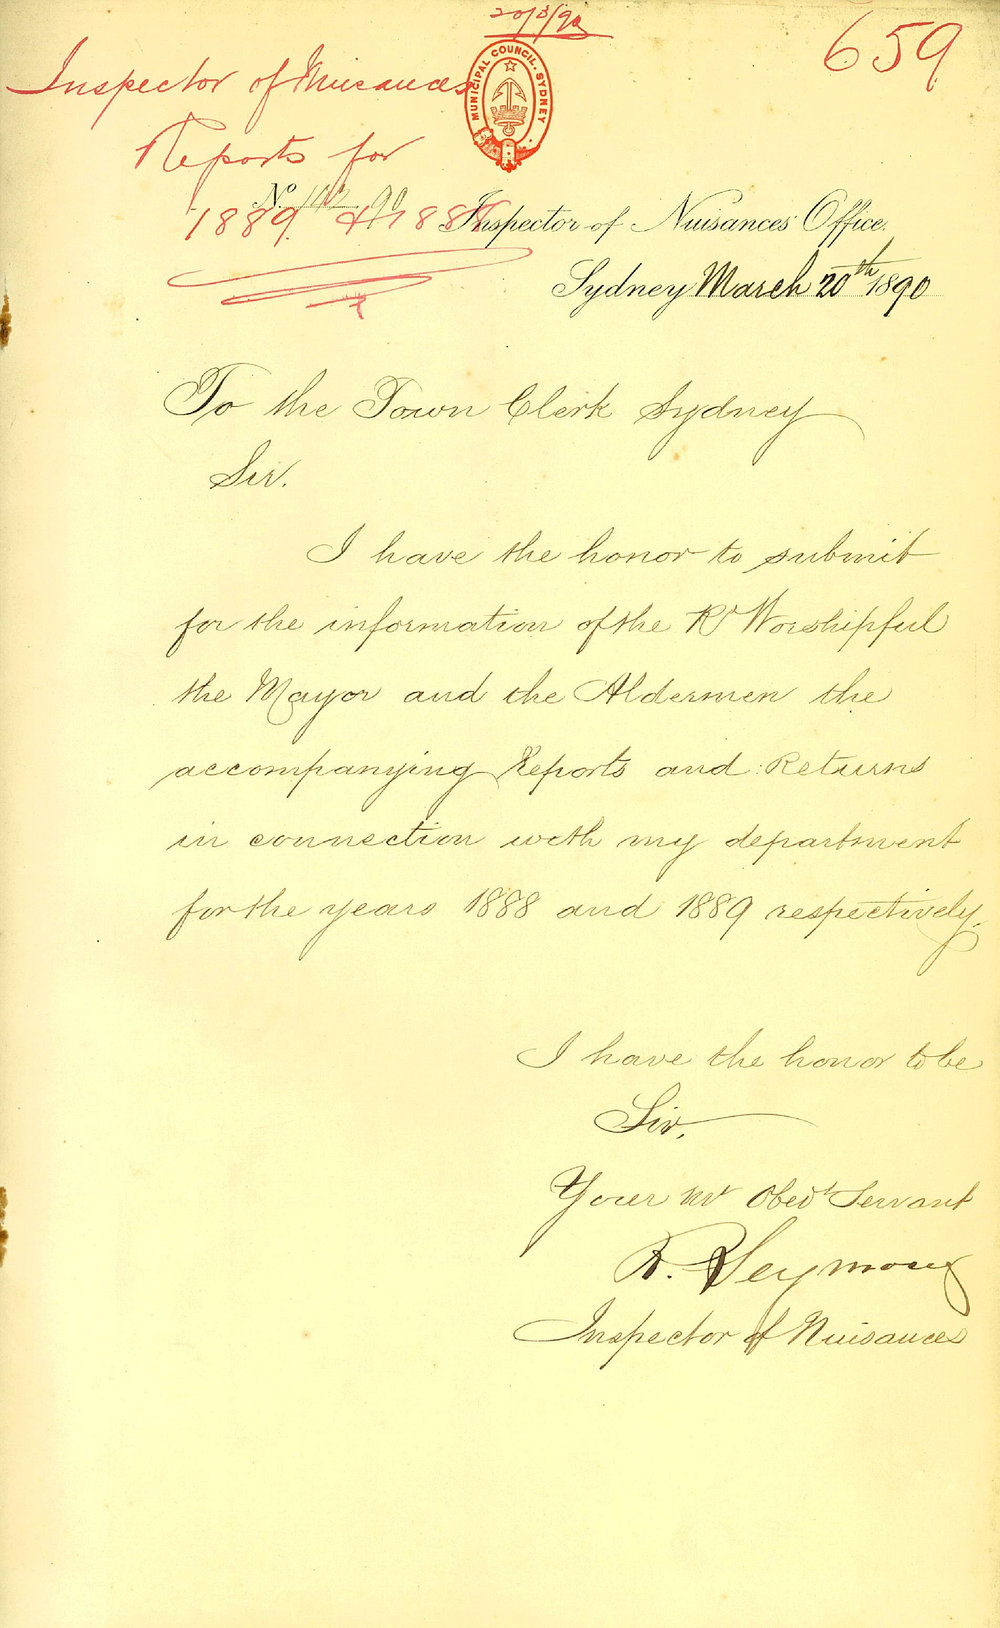 20/3/90
659
MUNICIPAL COUNCIL. SYDNEY
Inspector of Nuisances
Reports for
1889 & 1888
No. 102 90
Inspector of Nuisances Office.
Sydney March 20th 1890
To the Town Clerk Sydney
Sir.
I have the honor to submit
for the information of the Rt Worshipful
the Mayor and the Aldermen the
accompanying Reports and Returns
in connection with my department
for the years 1888 and 1889 respectively.
I have the honor to be
Sir,
Your Mt Obedt Servant
R. Seymour
Inspector of Nuisances